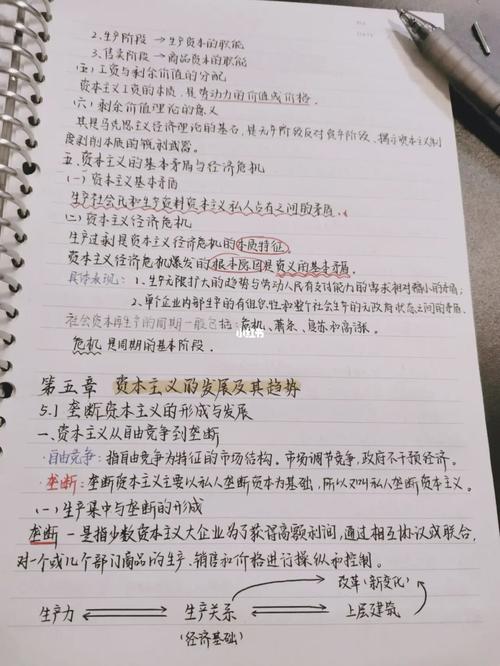 2.生产阶段 → 生产资本的职能
3.售卖阶段 → 商品资本的职能
(五)工资与剩余价值的分配
资本主义工资的本质,是劳动力的价值或价格.
(六)剩余价值理论的意义
其是马克思主义经济理论的基石,是无产阶级反对资产阶级、揭示资本主义制
度剥削本质的锐利武器。
五.资本主义的基本矛盾与经济危机
(一)资本主义基本矛盾
生产社会化和生产资料资本主义私人占有之间的矛盾.
(二)资本主义经济危机
生产过剩是资本主义经济危机的本质特征。
资本主义经济危机爆发的根本原因是资义的基本矛盾.
具体表现: 1.生产无限扩大的趋势与劳动人民有支付能力的需求相对缩小的矛盾;
2.单个企业内部生产的有组织性和整个社会生产的无政府状态之间的矛盾.
社会资本再生产的周期一般包括:危机、萧条、复苏和高涨.
危机是周期的基本阶段.
小红书
第五章 资本主义的发展及其趋势
5.1 垄断资本主义的形成与发展
一.资本主义从自由竞争到垄断
·自由竞争:指自由竞争为特征的市场结构。市场调节竞争,政府不干预经济。
·垄断:垄断资本主义主要以私人垄断资本为基础,所以又叫私人垄断资本主义。
(一)生产集中与垄断的形成
垄断 — 是指少数资本主义大企业为了获得高额利润,通过相互协议或联合,
对一个或几个部门商品的生产、销售和价格进行操纵和控制。
改革(新变化)
生产力 生产关系 上层建筑
(经济基础)